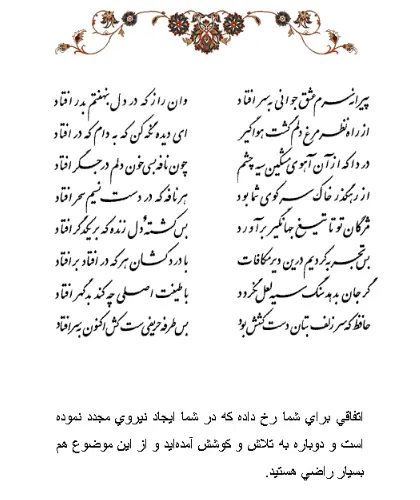 پیرانه سرم عشق جوانی به سر افتاد وان راز که در دل بنهفتم بدر افتاد
از راه نظر مرغ دلم گشت هواگیر ای دیده نگه کن که به دام که در افتاد
دردا که از آن آهوی مشکین سیه چشم چون نافه بسی خون دلم در جگر افتاد
از رهگذر خاک سر کوی شما بود هر نافه که در دست نسیم سحر افتاد
مژگان تو تا تیغ جهانگیر برآورد بس کشتهٔ دل زنده که بر یکدگر افتاد
بس تجربه کردیم درین دیر مکافات با درد کشان هر که در افتاد بر افتاد
گر جان بدهد سنگ سیه لعل نگردد با طینت اصلی چه کند بد گهر افتاد
حافظ که سر زلف بتان دست کشش بود بس طرفه حریفی ست کش اکنون به سر افتاد
اتفاقي براي شما رخ داده که در شما ايجاد نيروي مجدد نموده
است و دوباره به تلاش و کوشش آمده‌ايد و از اين موضوع هم
بسيار راضي هستيد.